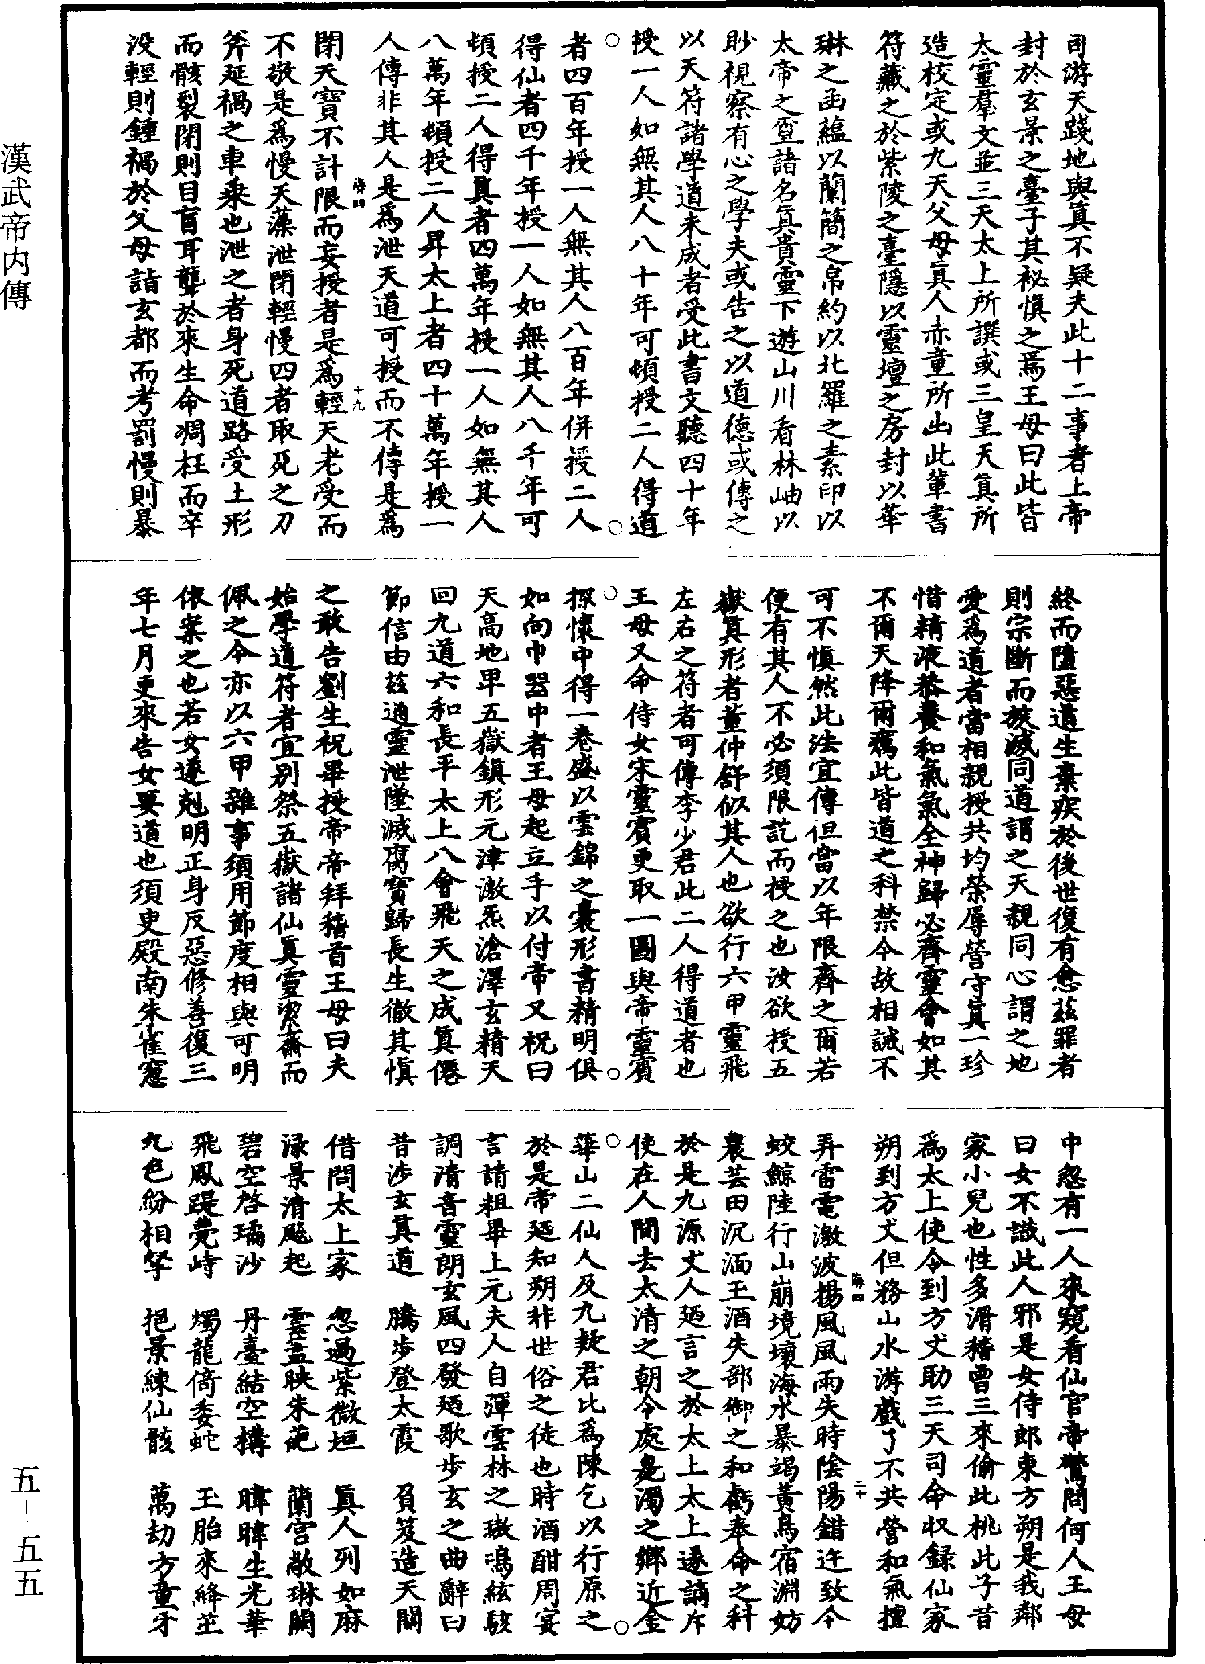 漢武帝内傳
司游天踐地與真不疑夫此十二事者上帝
封於玄景之臺子其祕慎之焉王母曰此皆
太靈羣文並三天太上所譔或三皇天真所
造校定或九天父母真人赤童所出此軰書
符藏之於紫陵之臺隱以靈壇之房封以華
琳之函藴以蘭簡之帛約以北羅之素印以
太帝之璽諸名真貴靈下遊山川看林岫以
眇視察有心之學夫或告之以道德或傳之
以天符諸學道未成者受此書文聽四十年
授一人如無其人八十年可頓授二人得道
者四百年授一人無其人八百年併授二人
得仙者四千年授一人如無其人八千年可
頓授二人得真者四萬年授一人如無其人
八萬年頓授二人昇太上者四十萬年授一
人傳非其人是為泄天道可授而不傳是為
海四 十九
閉天寶不計限而妄授者是為輕天老受而
不敬是為慢天藻泄閉輕慢四者取死之刀
斧延禍之車乘也泄之者身死道路受土形
而骸裂閉則目盲耳聾於來生命凋枉而卒
没輕則鍾禍於父母詣玄都而考罰慢則暴
終而墮惡道生棄疾於後世復有愈茲罪者
則宗斷而族滅同道謂之天親同心謂之地
愛為道者當相親授共均榮辱營守真一珍
惜精液恭養和氣氣全神歸必齊靈會如其
不爾天降爾癘此皆道之科禁今故相誡不
可不慎然此法宜傳但當以年限齊之爾若
便有其人不必須限訖而授之也汝欲授五
嶽真形者董仲舒似其人也欲行六甲靈飛
左右之符者可傳李少君此二人得道者也
王母又命侍女宋靈賓更取一圖與帝靈賓
探懷中得一卷盛以雲錦之囊形書精明俱
如向巾器中者王母起立手以付帝又祝曰
天高地卑五嶽鎮形元津激炁滄澤玄精天
回九道六和長平太上八會飛天之成真僊
節信由茲通靈泄墜滅腐寶歸長生徹其慎
之敢告劉生祝畢授帝帝拜稽首王母曰夫
始學道符者宜别祭五嶽諸仙真靈潔齋而
佩之今亦以六甲雜事須用節度相與可明
依案之也若女遂尅明正身反惡修善復三
年七月更來告女要道也須臾殿南朱雀窻
中忽有一人來窺看仙官帝驚問何人王母
曰女不識此人邪是女侍郎東方朔是我鄰
家小兒也性多滑稽曾三來偷此桃此子昔
為太上使令到方丈助三天司命收錄仙家
朔到方丈但務山水游戲了不共營和氣擅
海四 二十
弄雷電激波揚風風雨失時陰陽錯迕致令
蛟鯨陸行山崩境壞海水暴竭黃鳥宿淵妨
農芸田沉湎玉酒失部御之和虧奉命之科
於是九源丈人廼言之於太上太上遂謫斥
使在人間去太清之朝令處臭濁之鄉近金
華山二仙人及九疑君比為陳乞以行原之
於是帝廼知朔非世俗之徒也時酒酣周宴
言請粗畢上元夫人自彈雲林之璈鳴絃駭
調清音靈朗玄風四發廼歌步玄之曲辭曰
昔涉玄真道 騰步登太霞 負笈造天關
借問太上家 忽過紫微垣 真人列如麻
渌景清飈起 雲盖映朱葩 蘭宮敞琳闕
碧空啓璚沙 丹臺結空構 暐暐生光華
飛鳳踶甍峙 燭龍倚委蛇 玉胎來絳芝
九色紛相拏 挹景練仙骸 萬劫方童牙
五-五五